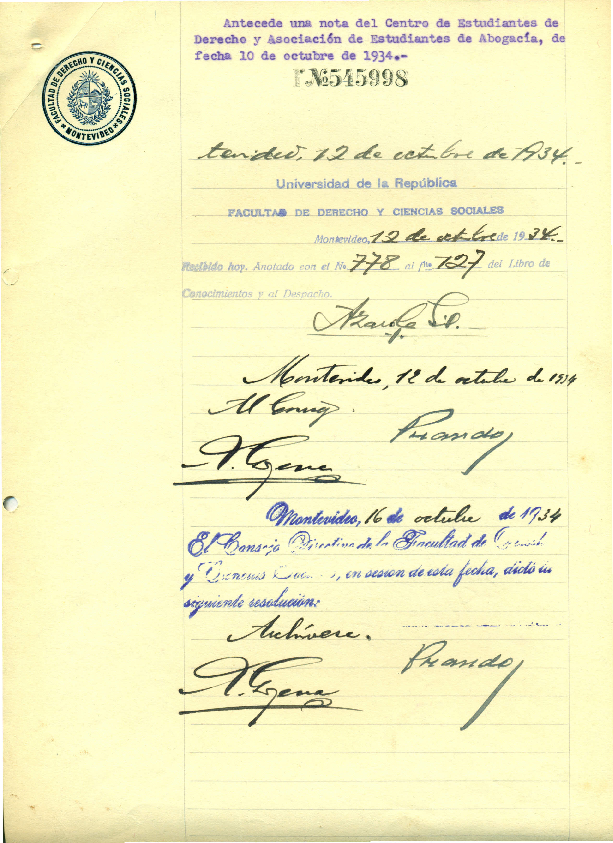 Antecede una nota del Centro de Estudiantes de
Derecho y Asociación de Estudiantes de Abogacía, de
fecha 10 de octubre de 1934.-
Nº545998
FACULTAD DE DERECHO Y CIENCIAS SOCIALES
MONTEVIDEO
tevideo, 12 de octubre de 1934.-
Universidad de la República
FACULTAD DE DERECHO Y CIENCIAS SOCIALES
Montevideo, 12 de octubre de 1934.-
Recibido hoy. Anotado con el Nº 778 al fº 127 del Libro de
Conocimientos y al Despacho.
Montevideo, 12 de octubre de 1934
Al Consejo.
Prando
Montevideo, 16 de octubre de 1934
El Consejo Directivo de la Facultad de
y Ciencias, en sesion de esta fecha, dictó la
siguiente resolución:
Archívese.
Prando